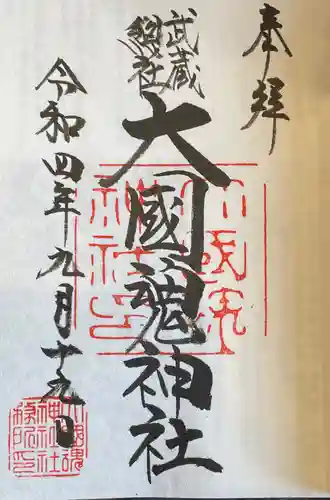 奉拝
武蔵
総社
大國魂神社
令和四年九月十九日
大國魂
神社印
大國魂
神社社
務所印